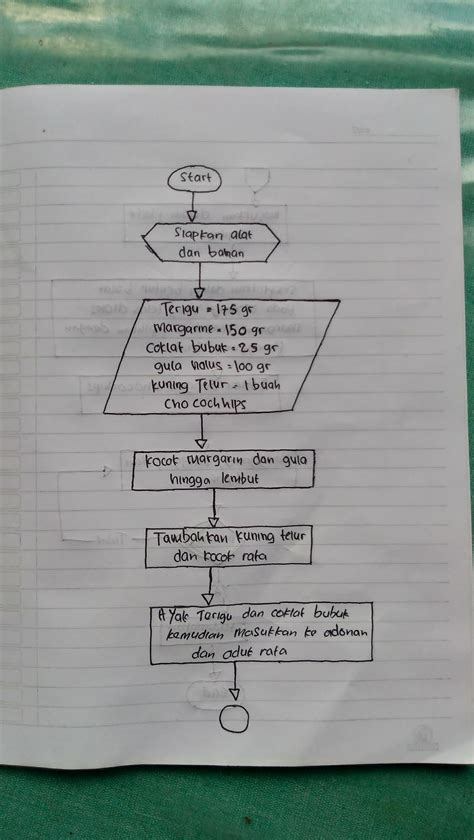 Start
Siapkan alat
dan bahan
Terigu = 175 gr
Margarine = 150 gr
Coklat bubuk = 25 gr
gula halus = 100 gr
kuning Telur = 1 buah
Cho cochhips
Kocok Margarin dan gula
hingga lembut
Tambahkan kuning telur
dan kocok rata
AYak Terigu dan coklat bubuk
kemudian Masukkan ke adonan
dan aduk rata